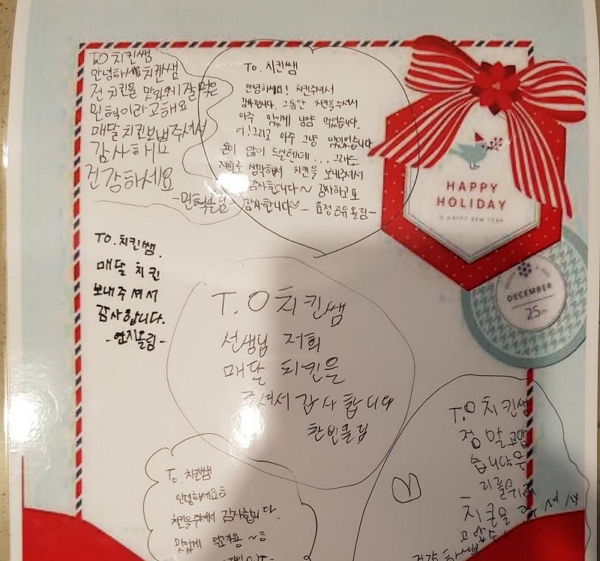 TO 치킨쌤
안녕하세요 치캰쌤
전 치킨을 맛있게 잘 먹은
민혁이라고해요
매달 치킨보내주셔서
감사해요
건강하세요
-민혁올림-
To. 치킨쌤
안녕하세요! 치킨주셔서
감사합니다. 그동안 치킨을주셔서
아주 맛있게 냠냠 먹었습니다.
어! 그리고 아주 그냥 맛있었습니다
돈이 많이 드실텐데... 그래도
저희를 생각해서 치킨을 보내주셔서
감사합니다~ 감사하고요
감사합니다♡
올림-
TO. 치킨쌤.
매달 치킨
보내주셔서
감사합니다.
-현지올림-
HAPPY
HOLIDAY
& HAPPY NEW YEAR
DECEMBER
25th
T.O 치킨쌤
선생님 저희
매달 치킨을
주셔서 감사합니다
찬빈올림
To. 치킨쌤
안녕하세요
치킨을주셔서 감사합니다.
맛있게 먹
T.O 치킨쌤
정말 고맙
습니다
치킨을
고맙습
건강하세